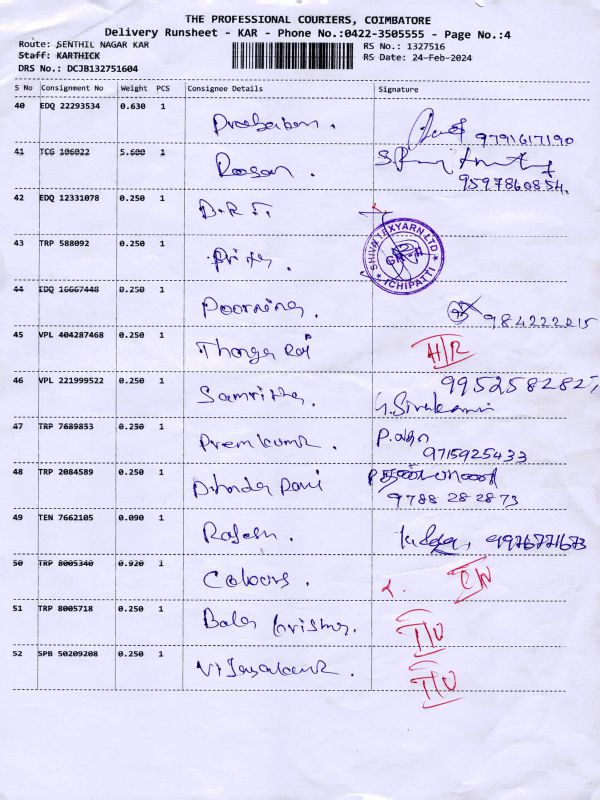 THE PROFESSIONAL COURIERS, COIMBATORE
Delivery Runsheet - KAR - Phone No.:0422-3505555 - Page No.:4
Route: SENTHIL NAGAR KAR
RS No.: 1327516
Staff: KARTHICK
RS Date: 24-Feb-2024
DRS No.: DCJB132751604
S No Consignment No Weight PCS Consignee Details Signature
40 EDQ 22293534 0.630 1
Prabakaran.
9791617190
41 TCG 106022 5.600 1
Rosan.
9597860854.
42 EDQ 12331078 0.250 1
D.R.T.
43 TRP 588092 0.250 1
Priya.
SHIVA TEXYARN LTD
ICHIPATTI
44 EDQ 16667448 0.250 1
Poornima.
9842222215
45 VPL 404287468 0.250 1
Thangaraj
H/R
46 VPL 221999522 0.250 1
9952582827
Samritha.
G. Sivakami
47 TRP 7689853 0.250 1
Premkumar.
9715925433
48 TRP 2084589 0.250 1
9788 28 28 73
49 TEN 7662105 0.090 1
Rajesh.
9976771673
50 TRP 8005340 0.920 1
Colours.
51 TRP 8005718 0.250 1
Bala Krishna.
52 SPB 50209208 0.250 1
Vijayakumar.